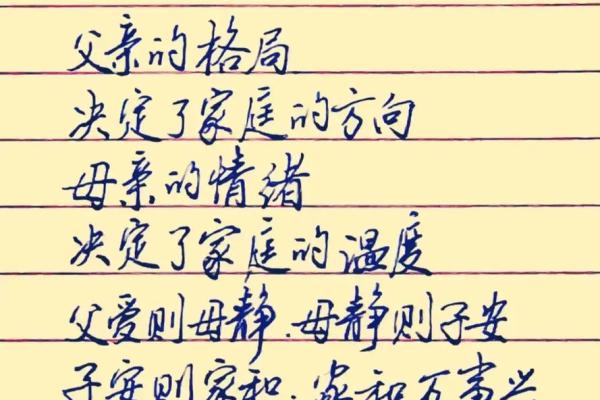 父亲的格局
决定了家庭的方向
母亲的情绪
决定了家庭的温度
父爱则母静.母静则子安
子安则家和.家和万事兴